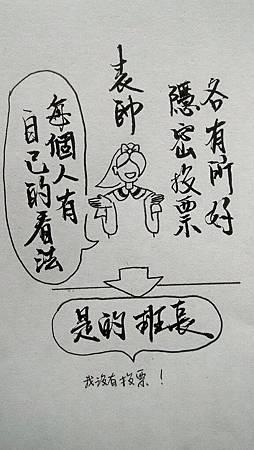 各有所好
隱密投票
表師
每個人有
自己的看法
是的班長
我沒有投票！